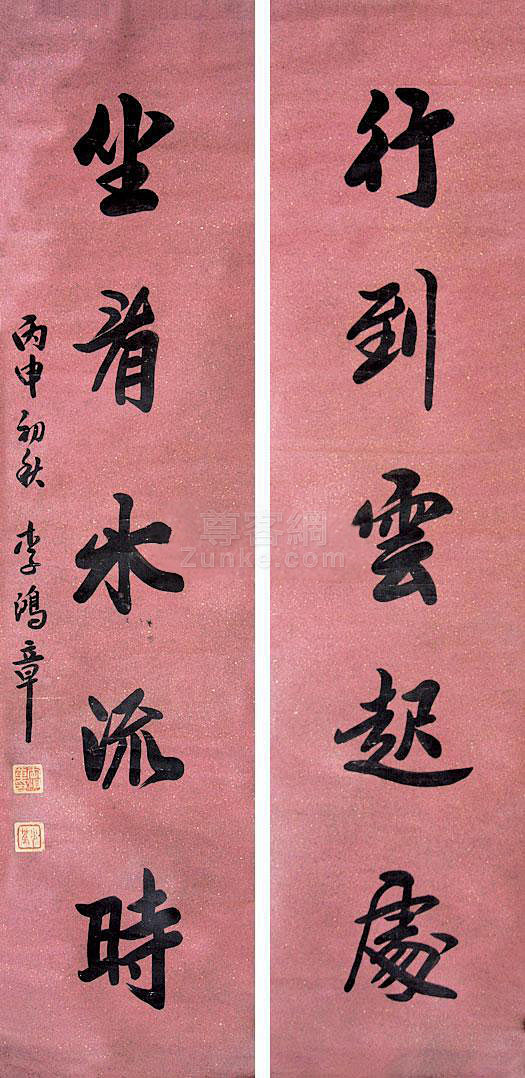 行到雲起處
坐看水流時
丙申初秋 李鴻章
尊客網
Zunke.com